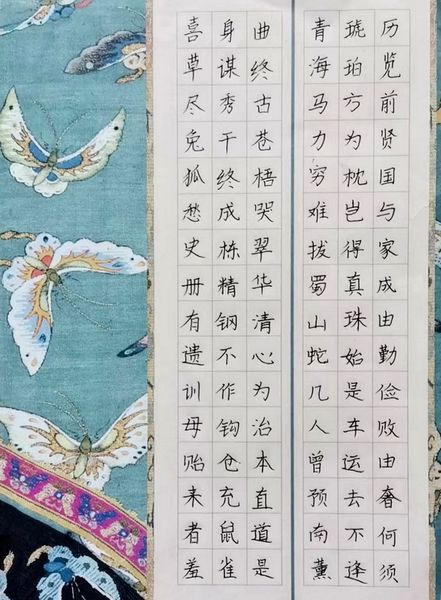 历览前贤国与家成由勤俭败由奢何须
琥珀方为枕岂得真珠始是车运去不逢
青海马力穷难拔蜀山蛇几人曾预南薰
曲终古苍梧哭翠华清心为治本直道是
身谋秀干终成栋精钢不作钩仓充鼠雀
喜草尽兔狐愁史册有遗训毋贻来者羞